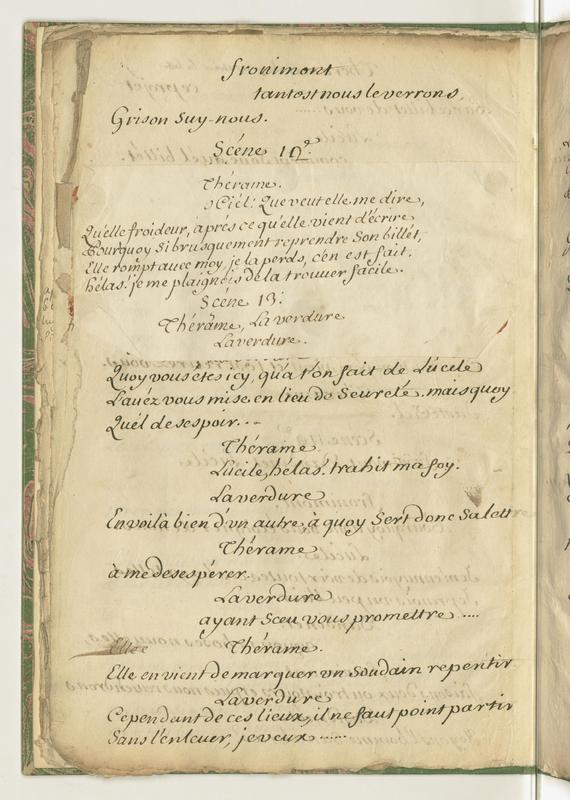 fronimont
tantost nous le verrons,
Grison Suy-nous.
Scéne 12e.
Thérame.
ô Ciél! Que veut elle me dire,
Qu'elle froideur, aprés ce qu'elle vient d'écrire
Pourquoy Si brusquement reprendre Son billet,
Elle rompt avec moy, je la perds, c'en est fait,
hélas! je me plaignois de la trouver facile.
Scéne 13:
Thérame, Laverdure
Laverdure.
Quoy vous etes icy, qu'a t'on fait de Lucile
L'avez vous mise en lieu de Seureté. mais quoy
Quél desespoir...
Thérame
Lucile, hélas! trahit ma foy.
Laverdure
En voila bien d'vn autre, à quoy Sert donc Sa lett
Thérame
à me desespérer.
Laverdure
ayant Sceu vous promettre ....
Elle
Thérame.
Elle en vient de marquer vn Soudain repentir
Laverdure
Cependant de ces lieux, il ne faut point partir
Sans l'enlever, je veux ......